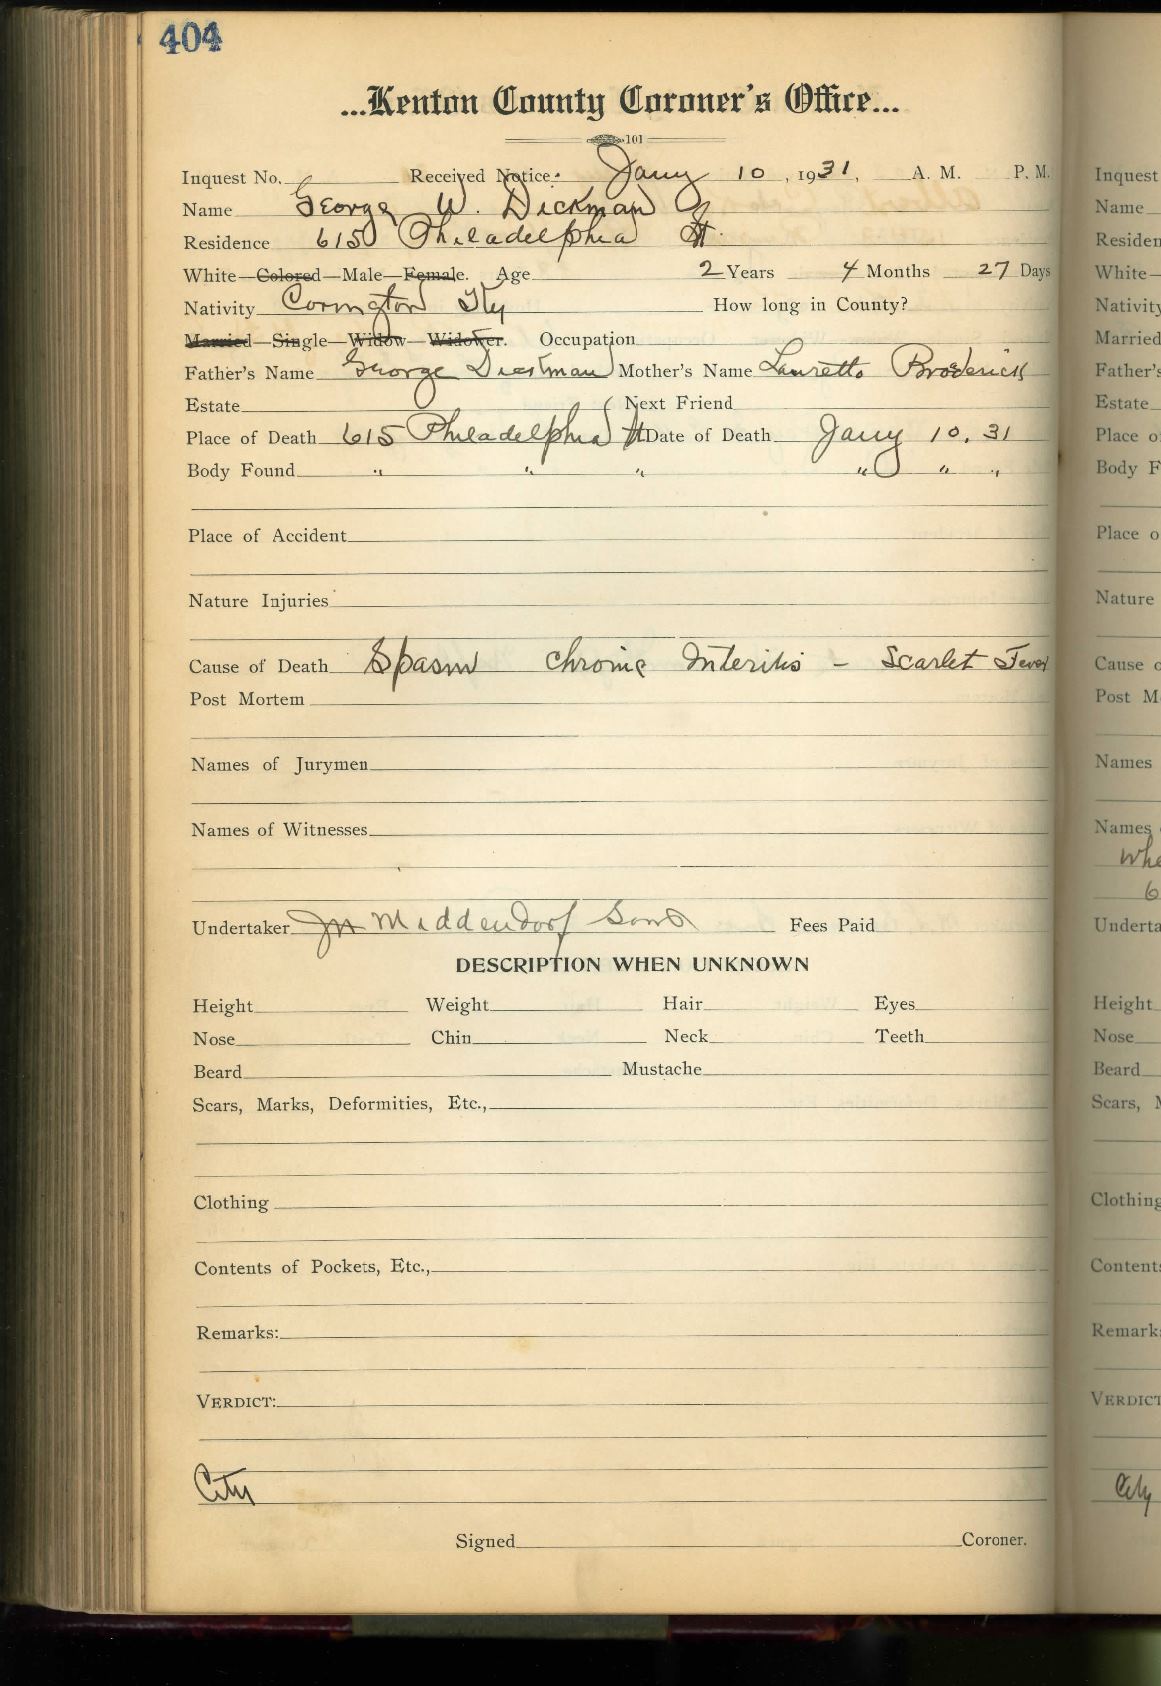 404
...Kenton County Coroner's Office...
101
Inquest No. Received Notice: Jany 10, 1931, A. M. P. M.
Name George W. Dickman
Residence 615 Philadelphia St.
White—Colored—Male—Female. Age 2 Years 4 Months 27 Days
Nativity Covington Ky How long in County?
Married—Single—Widow—Widower. Occupation
Father's Name George Dickman Mother's Name Lauretta Broderick
Estate Next Friend
Place of Death 615 Philadelphia St Date of Death Jany 10, 31
Body Found " " " " " "
Place of Accident
Nature Injuries
Cause of Death Spasm chronic Interitis – Scarlet Fever
Post Mortem
Names of Jurymen
Names of Witnesses
Undertaker Jn Middendorf Sons Fees Paid
DESCRIPTION WHEN UNKNOWN
Height Weight Hair Eyes
Nose Chin Neck Teeth
Beard Mustache
Scars, Marks, Deformities, Etc.,
Clothing
Contents of Pockets, Etc.,
Remarks:
VERDICT:
City
Signed Coroner.
Inquest
Name
Residen
White—
Nativity
Married
Father's
Estate
Place o
Body F
Place o
Nature
Cause o
Post M
Names
Names
Whe
6
Underta
Height
Nose
Beard
Scars, M
Clothing
Contents
Remark
VERDICT
City